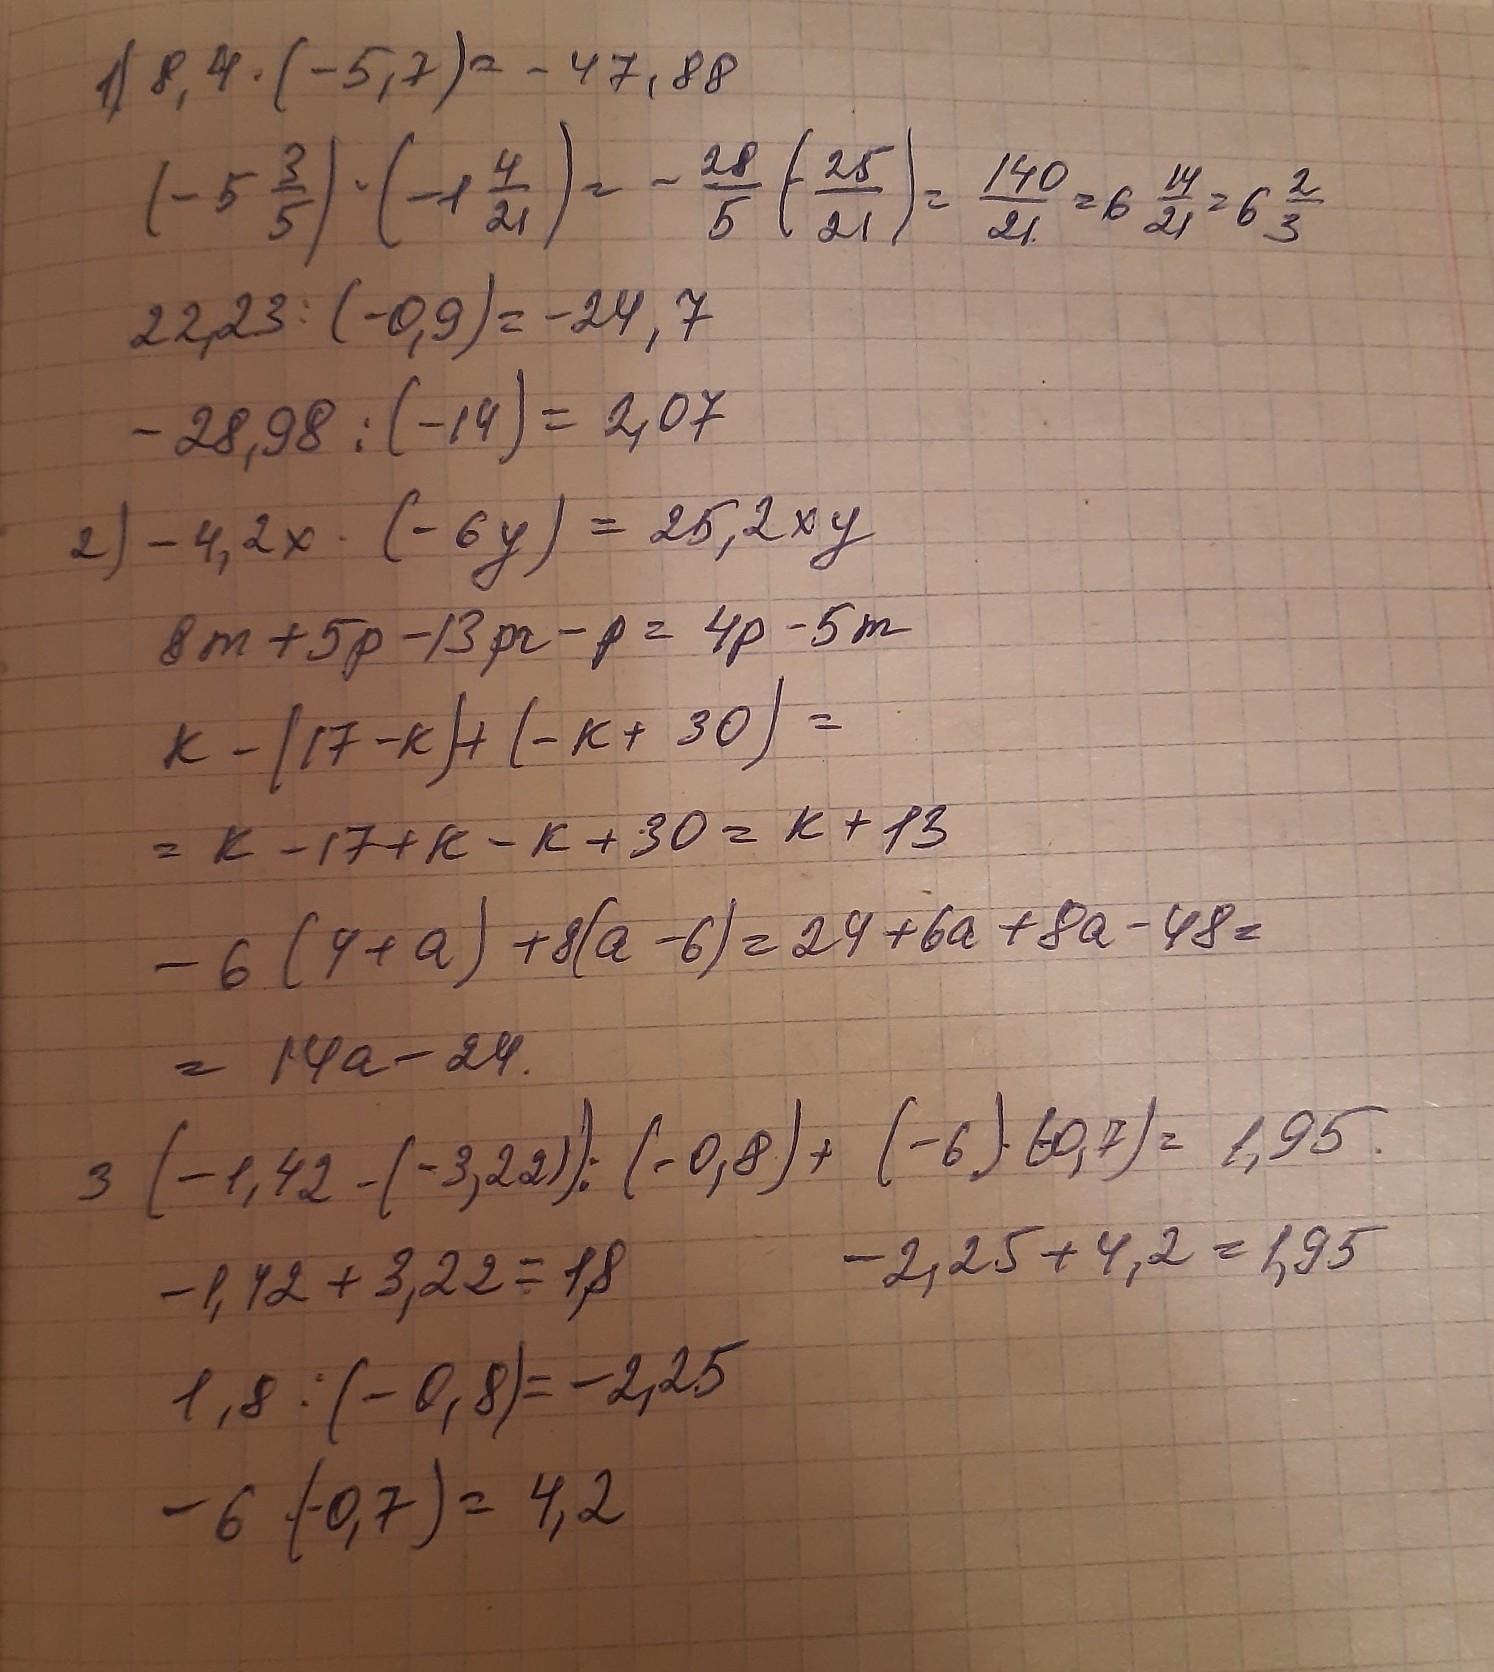 1) 8,4 · (-5,7) = -47,88
(-5 3/5) · (-1 4/21) = -28/5 (-25/21) = 140/21 = 6 14/21 = 6 2/3
22,23 : (-0,9) = -24,7
-28,98 : (-14) = 2,07
2) -4,2x · (-6y) = 25,2xy
8m + 5p - 13m - p = 4p - 5m
k - (17 - k) + (-k + 30) =
= k - 17 + k - k + 30 = k + 13
-6 (4 + a) + 8(a - 6) = 24 + 6a + 8a - 48 =
= 14a - 24.
3 (-1,42 - (-3,22)) : (-0,8) + (-6) · (-0,7) = 1,95.
-1,42 + 3,22 = 1,8 -2,25 + 4,2 = 1,95
1,8 : (-0,8) = -2,25
-6 (-0,7) = 4,2